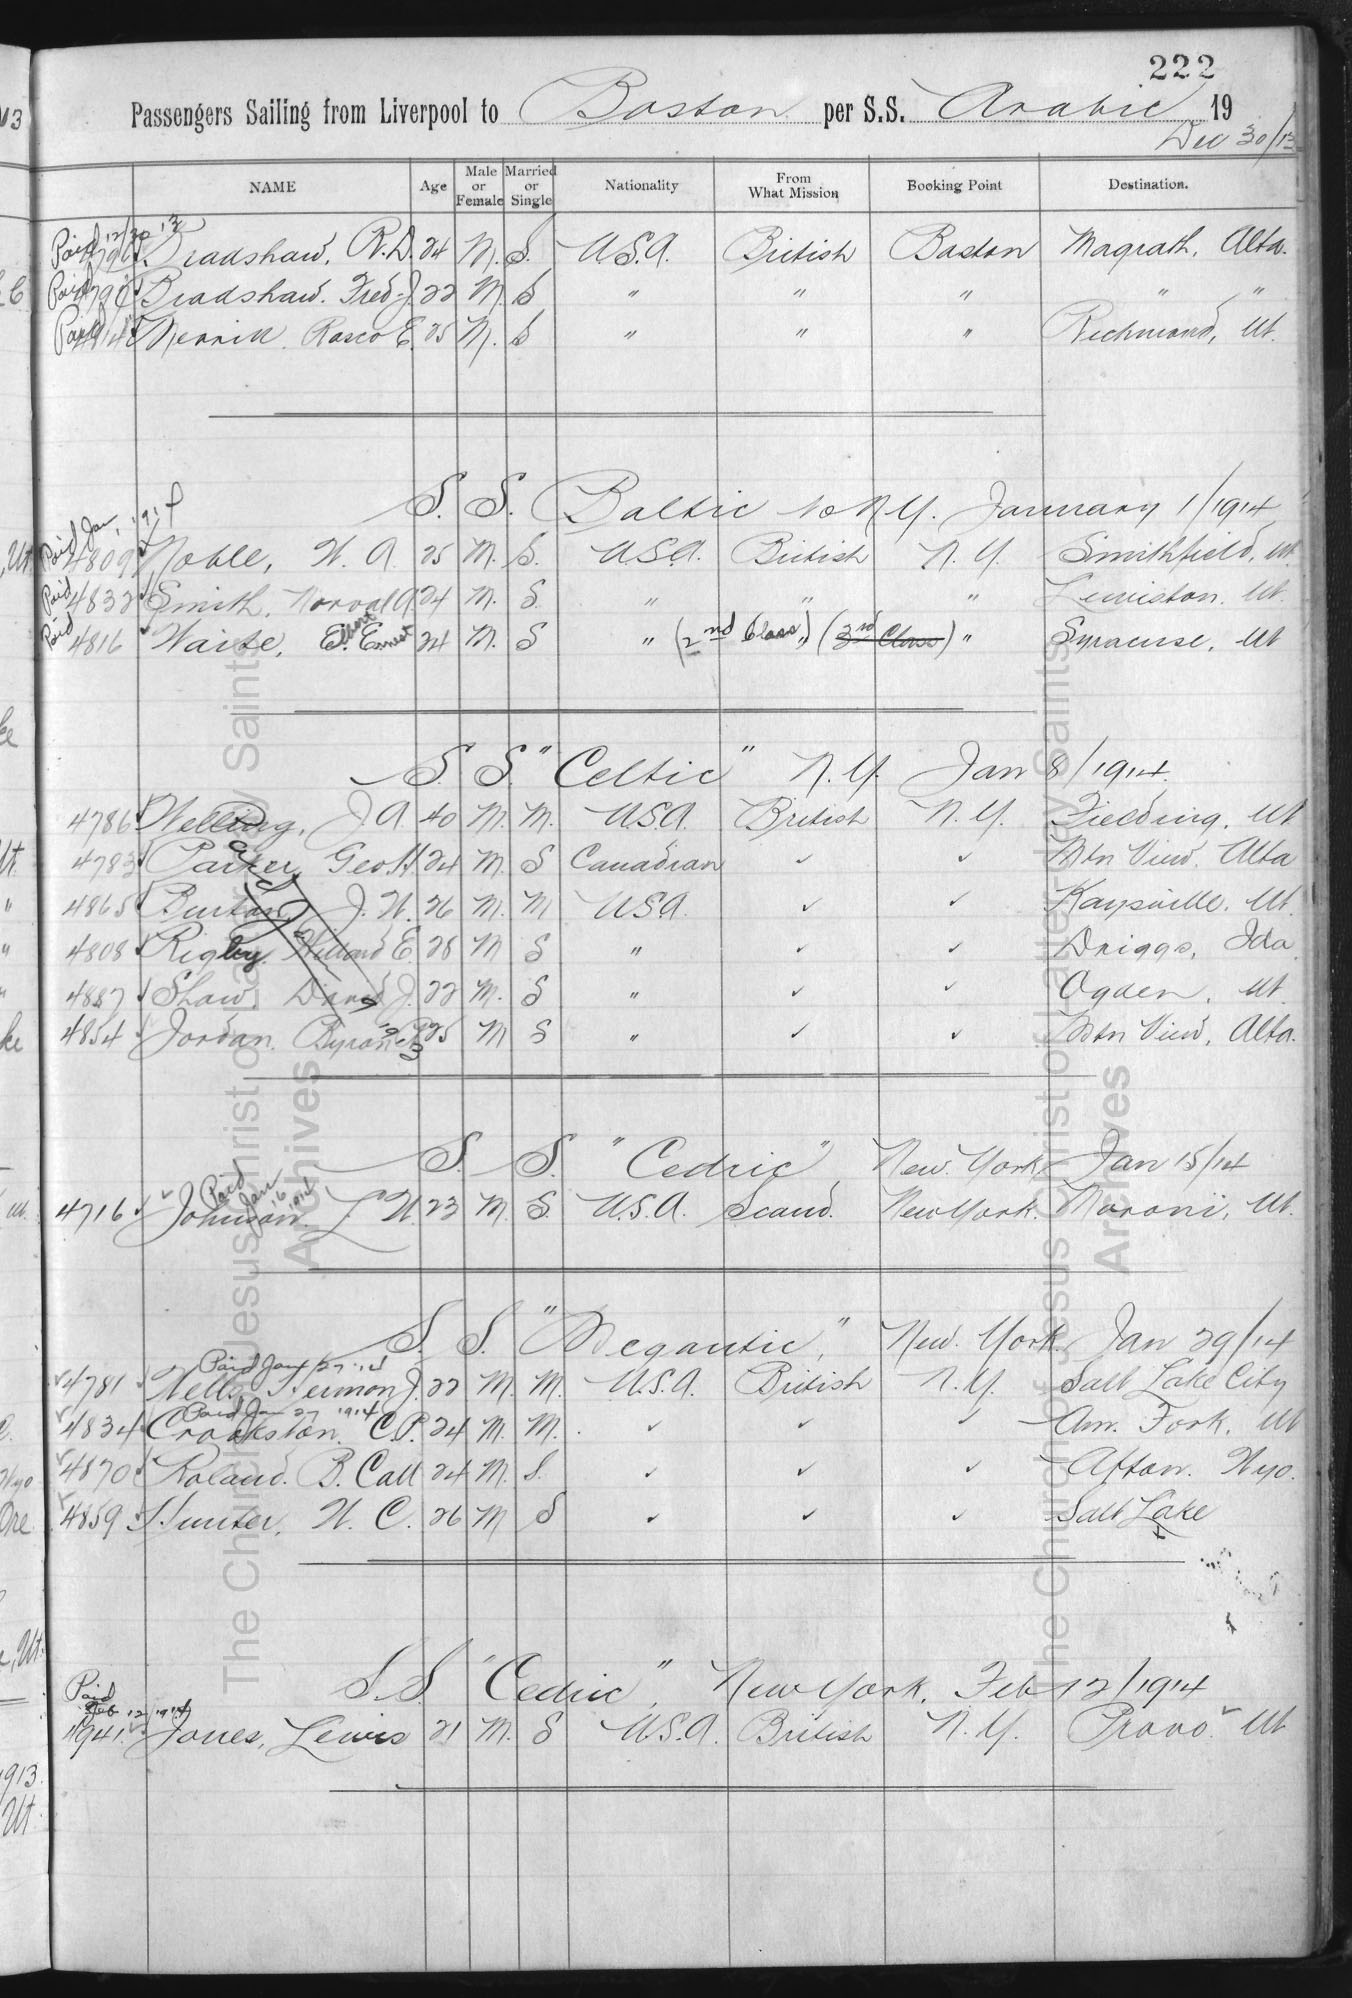 222
Passengers Sailing from Liverpool to Boston per S.S. Arabic 19
Dec 30/13
NAME Age Male or Female Married or Single Nationality From What Mission Booking Point Destination.
Paid 12/30 13
Bradshaw, R.D. 24 M. S. U.S.A. British Boston Magrath, Alta.
Paid Bradshaw. Fred J. 22 M. S " " " " "
Paid Merrill Rasco E. 25 M. S " " " Richmond, Ut.
S. S. Baltic to N.Y. January 1/1914
Paid Jan, 1914
4809 Noble, W. A. 25 M. S. U.S.A. British N.Y. Smithfield, Ut.
Paid 4832 Smith, Norval A. 24 M. S. " " " Lewiston. Ut.
Paid 4816 Waite, E. Elbert Ernest 24 M. S " (2nd Class) " (3rd Class) " Syracuse, Ut
S. S. "Celtic" N.Y. Jan 8/1914.
4786 Welling, J A. 40 M. M. U.S.A. British N.Y. Fielding, Ut
4783 Parker, Geo. H. 24 M. S Canadian ✓ ✓ Mtn View. Alta
4865 Burton, J. W. 26 M. M U.S.A. ✓ ✓ Kaysville. Ut.
4808 Rigby. Willard E. 28 M S " ✓ ✓ Driggs, Ida.
4887 Shaw David J. 22 M. S " ✓ ✓ Ogden, Ut.
4854 Jordan. Byron 25 M S " ✓ ✓ Mtn View, Alta.
S. S. "Cedric", New York Jan 15/14
Paid Jan 16 1914
4716 Johnson. L W. 23 M. S. U.S.A. Scand. New York. Moroni, Ut.
S. S. "Megantic," New York. Jan 29/14
Paid Jany 27 '14
4781 Wells Hermon J. 22 M. M. U.S.A. British N.Y. Salt Lake City
Paid Jan 27 1914
4834 Crookston. C.P. 24 M. M. ✓ ✓ ✓ Am. Fork. Ut
4870 Roland. B. Call 24 M. S. ✓ ✓ ✓ Afton. Wyo.
4859 Hunter, W. C. 26 M S ✓ ✓ ✓ Salt Lake
S.S. "Cedric", New York, Feb 12/1914
Paid Feb 12/1914
4941 Jones, Lewis 21 M. S U.S.A. British N.Y. Provo. Ut
The Church of Jesus Christ of Latter-day Saints
Archives
The Church of Jesus Christ of Latter-day Saints
Archives